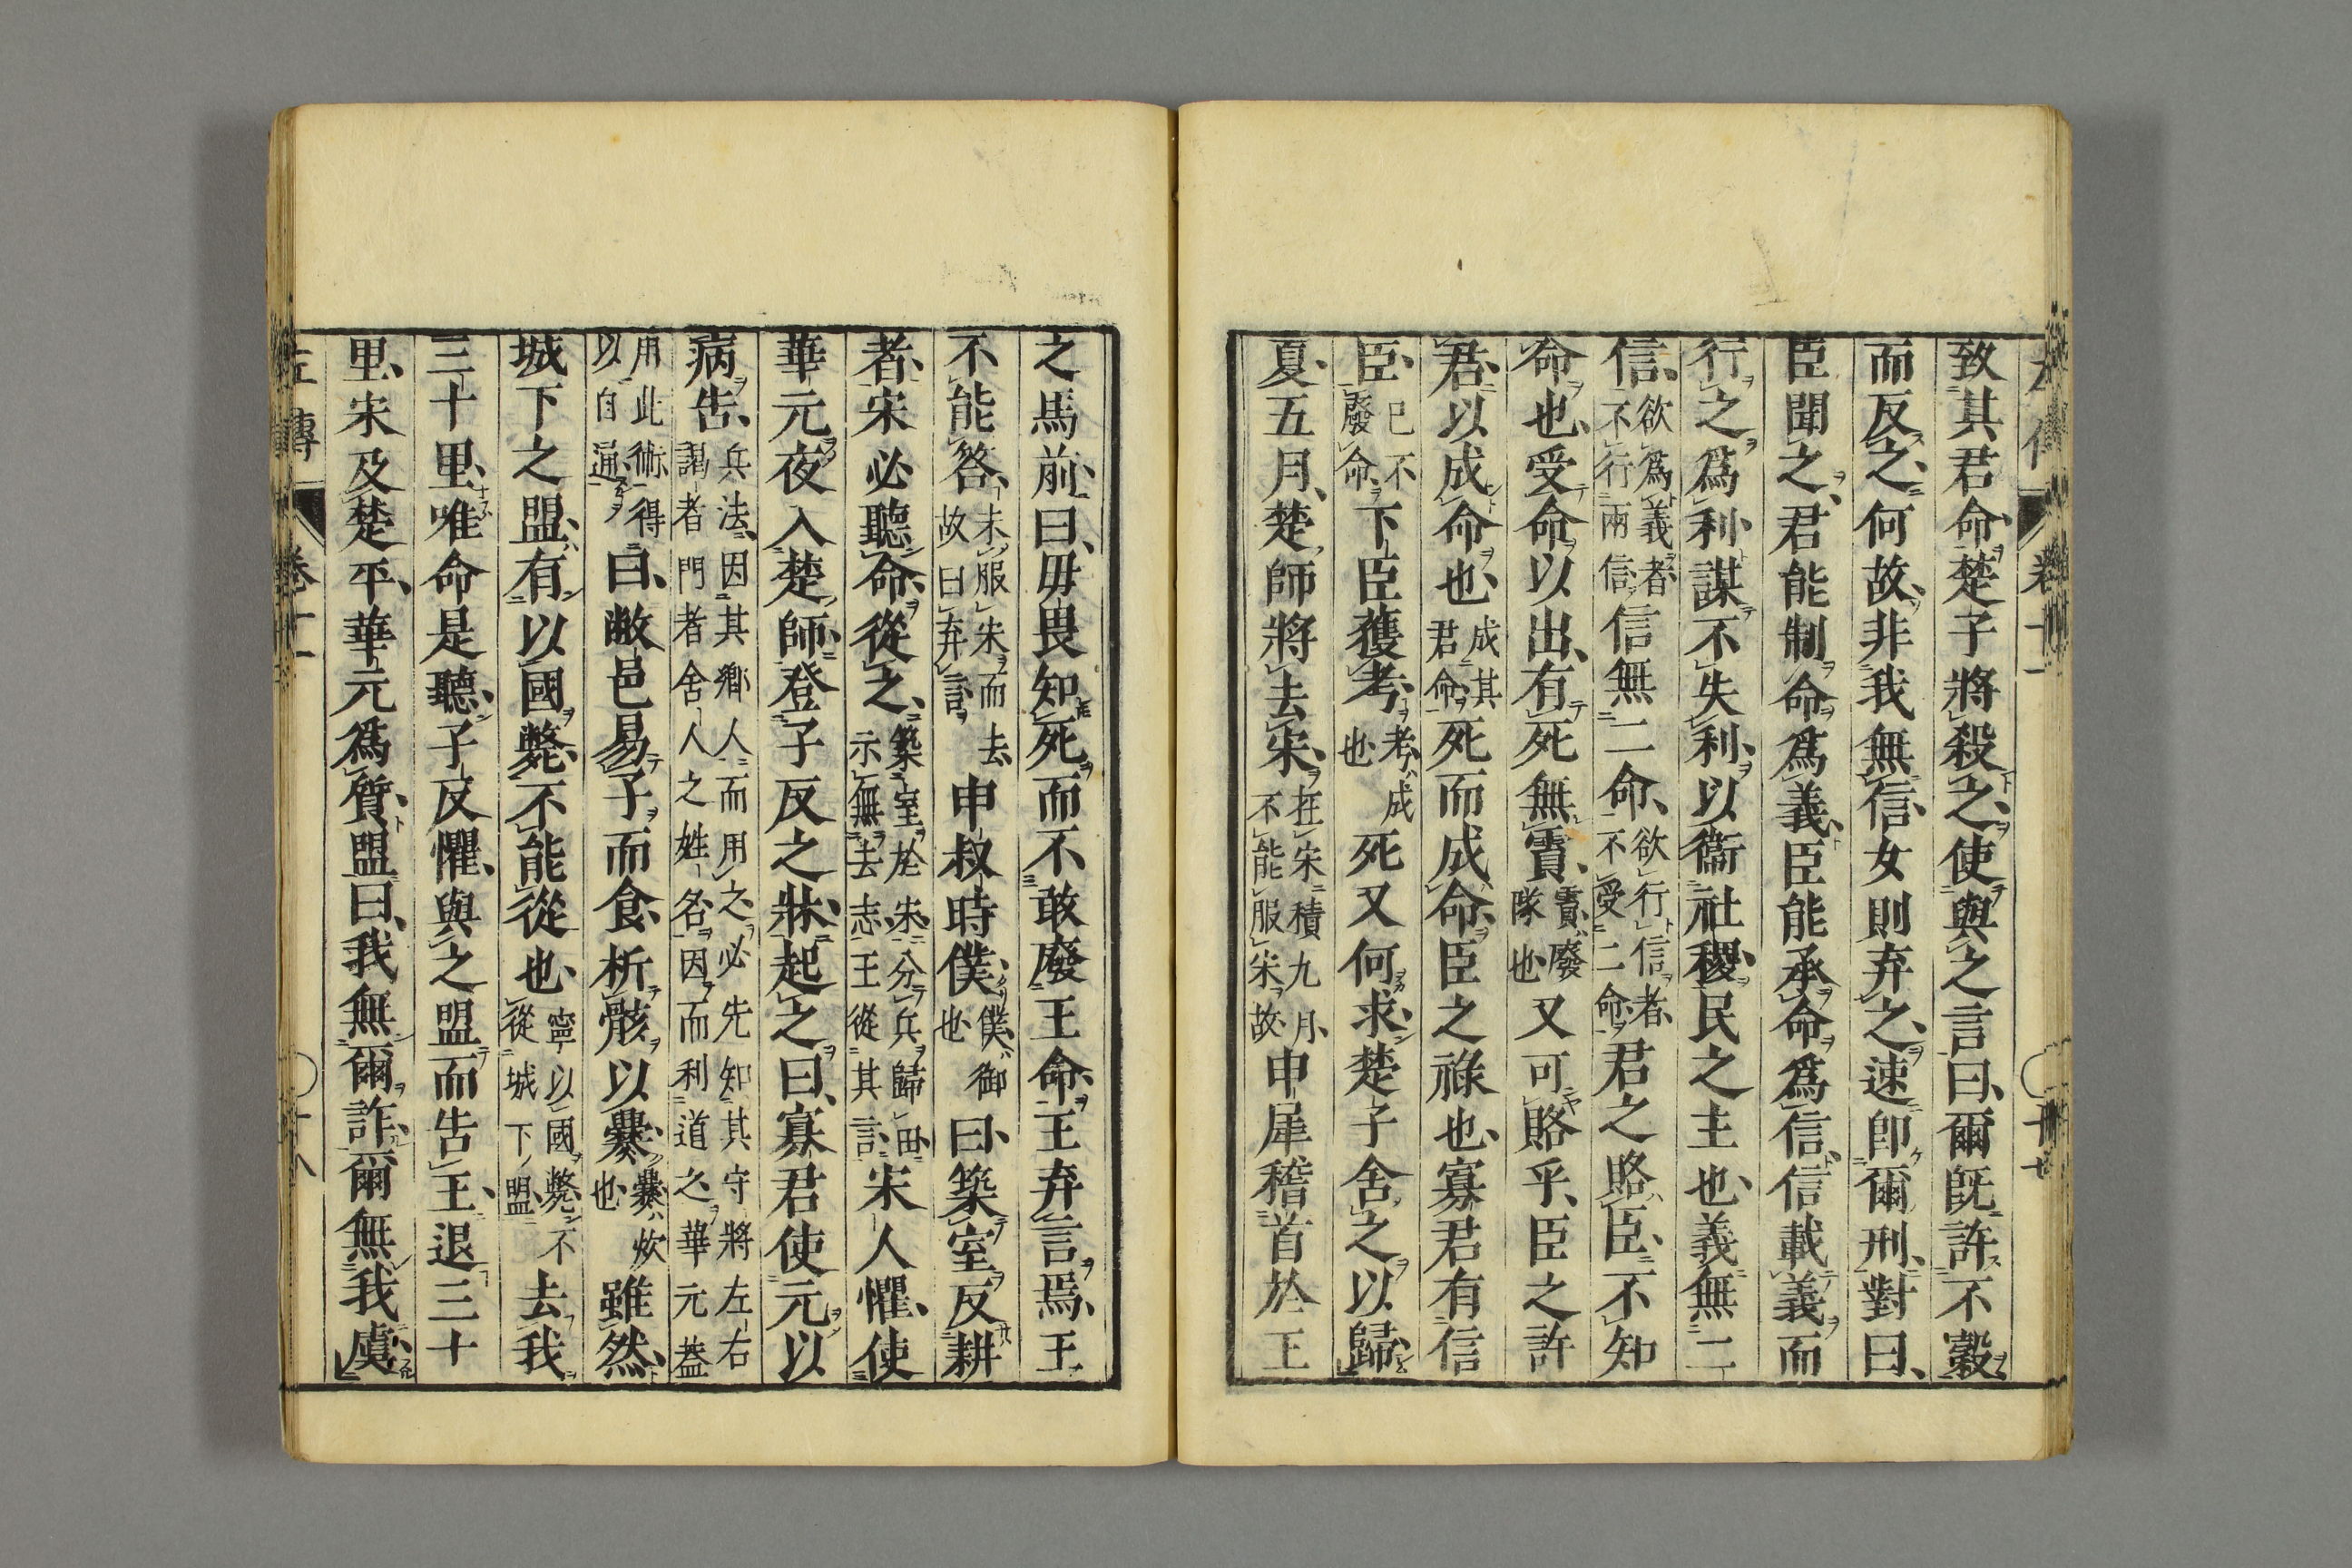 致其君命、楚子將殺之、使與之言曰、爾既許不穀、
而反之、何故、非我無信、女則弃之、速即爾刑、對曰、
臣聞之、君能制命爲義、臣能承命爲信、信載義而
行之爲利、謀不失利、以衞社稷、民之主也、義無二
信、欲爲義者不行兩信信無二命、欲行信者不受二命君之賂臣、不知
命也、受命以出、有死無霣、霣廢隊也又可賂乎、臣之許
君、以成命也、成其君命死而成命、臣之祿也、寡君有信
臣、已不廢命下臣獲考、考成也死又何求、楚子舍之以歸、
夏、五月、楚師將去宋、在宋積九月不能服宋故申犀稽首於王
之馬前、曰、毋畏知死而不敢廢王命、王弃言焉、王
不能答、未服宋而去故曰弃言申叔時僕、僕御也曰、築室反耕
者、宋必聽命、從之、築室於宋分兵歸田示無去志王從其言宋人懼、使
華元夜入楚師、登子反之牀、起之曰、寡君使元以
病告、兵法因其鄉人而用之必先知其守將左右謁者門者舍人之姓名因而利道之華元葢
用此術得以自通曰、敝邑易子而食、析骸以爨、爨炊也雖然、
城下之盟、有以國斃、不能從也、寧以國斃不從城下盟去我
三十里、唯命是聽、子反懼、與之盟而告王、退三十
里、宋及楚平、華元爲質、盟曰、我無爾詐、爾無我虞、
左傳 卷十一 十八